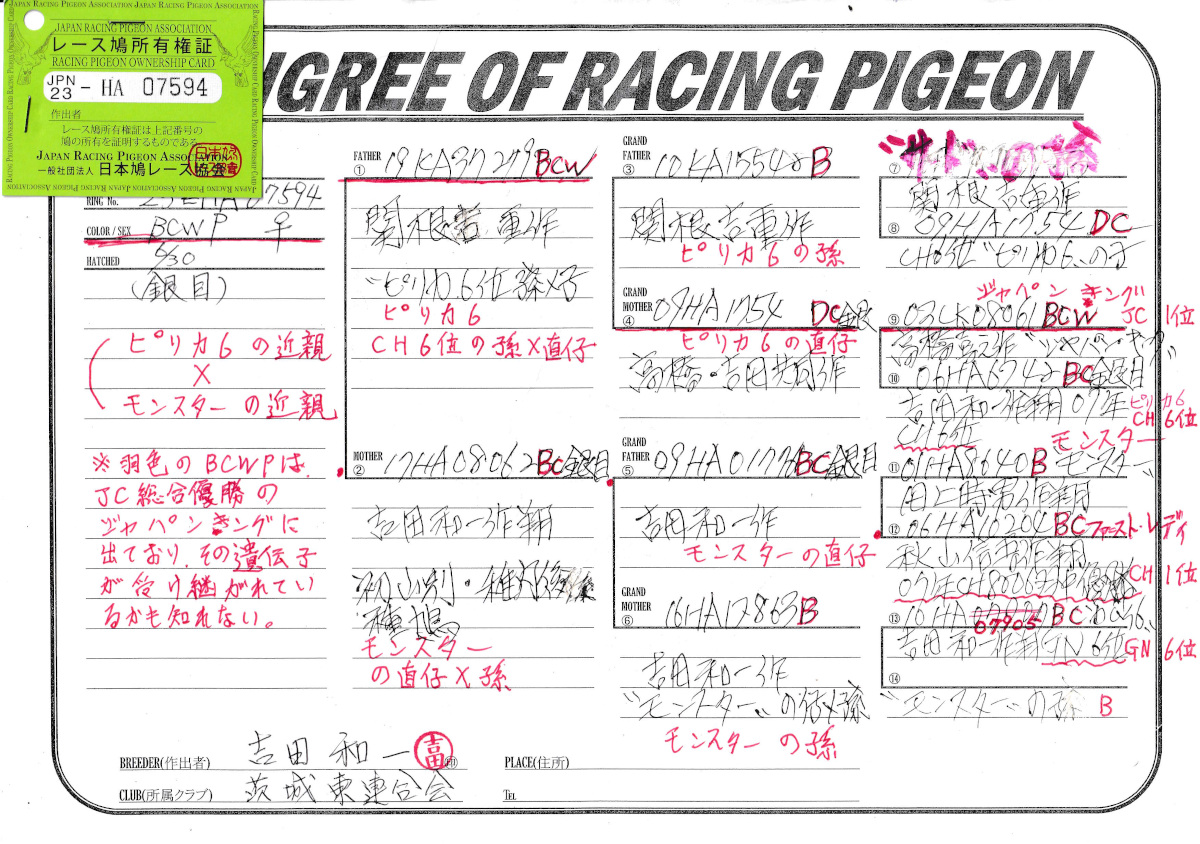 JAPAN RACING PIGEON ASSOCIATION
レース鳩所有権証
RACING PIGEON OWNERSHIP CARD
JPN 23 - HA 07594
作出者
レース鳩所有権証は上記番号の
鳩の所有を証明するものである
JAPAN RACING PIGEON ASSOCIATION
一般社団法人 日本鳩レース協会
IGREE OF RACING PIGEON
RING No. 23 HA 07594
COLOR / SEX BCWP ♀
HATCHED 6/30
(銀目)
ピリカ6 の近親
×
モンスターの近親
※羽色のBCWPは、
JC総合優勝の
ジャパンキングに
出ており、その遺伝子
が受け継がれてい
るかも知れない。
FATHER
① 19KA37279 BCW
関根吉重作
"ピリカ6"位孫×子
ピリカ6
CH6位の孫×直仔
MOTHER
② 17HA08062 BC銀目
吉田和一作翔
種鳩
モンスター
の直仔×孫
GRAND FATHER
③ B
関根吉重作
ピリカ6の孫
GRAND MOTHER
④ 09HA1754 DC銀
ピリカ6の直仔
高橋・吉田共同作
GRAND FATHER
⑤ BC銀目
吉田和一作
モンスターの直仔
GRAND MOTHER
⑥ 16HA17863 B
吉田和一作
"モンスター"の
モンスターの孫
⑦
関根吉重作
⑧ 09HA1754 DC
CH6位"ピリカ6"の子
ジャパンキング
JC 1位
⑨ 03CK08061 BCW
⑩ BC銀目
吉田和一作翔07年
ピリカ6
CH6位
CH6位
モンスター
⑪ 01HA8640 B モンスター
⑫ 06HA10204 BCファーストレディ
CH 1位
⑬ 07905 BC
吉田和一作翔GN6位
GN 6位
⑭
"モンスター"の孫 B
BREEDER(作出者) 吉田和一 吉田 ㊞
CLUB(所属クラブ) 茨城東連合会
PLACE(住所)
TEL